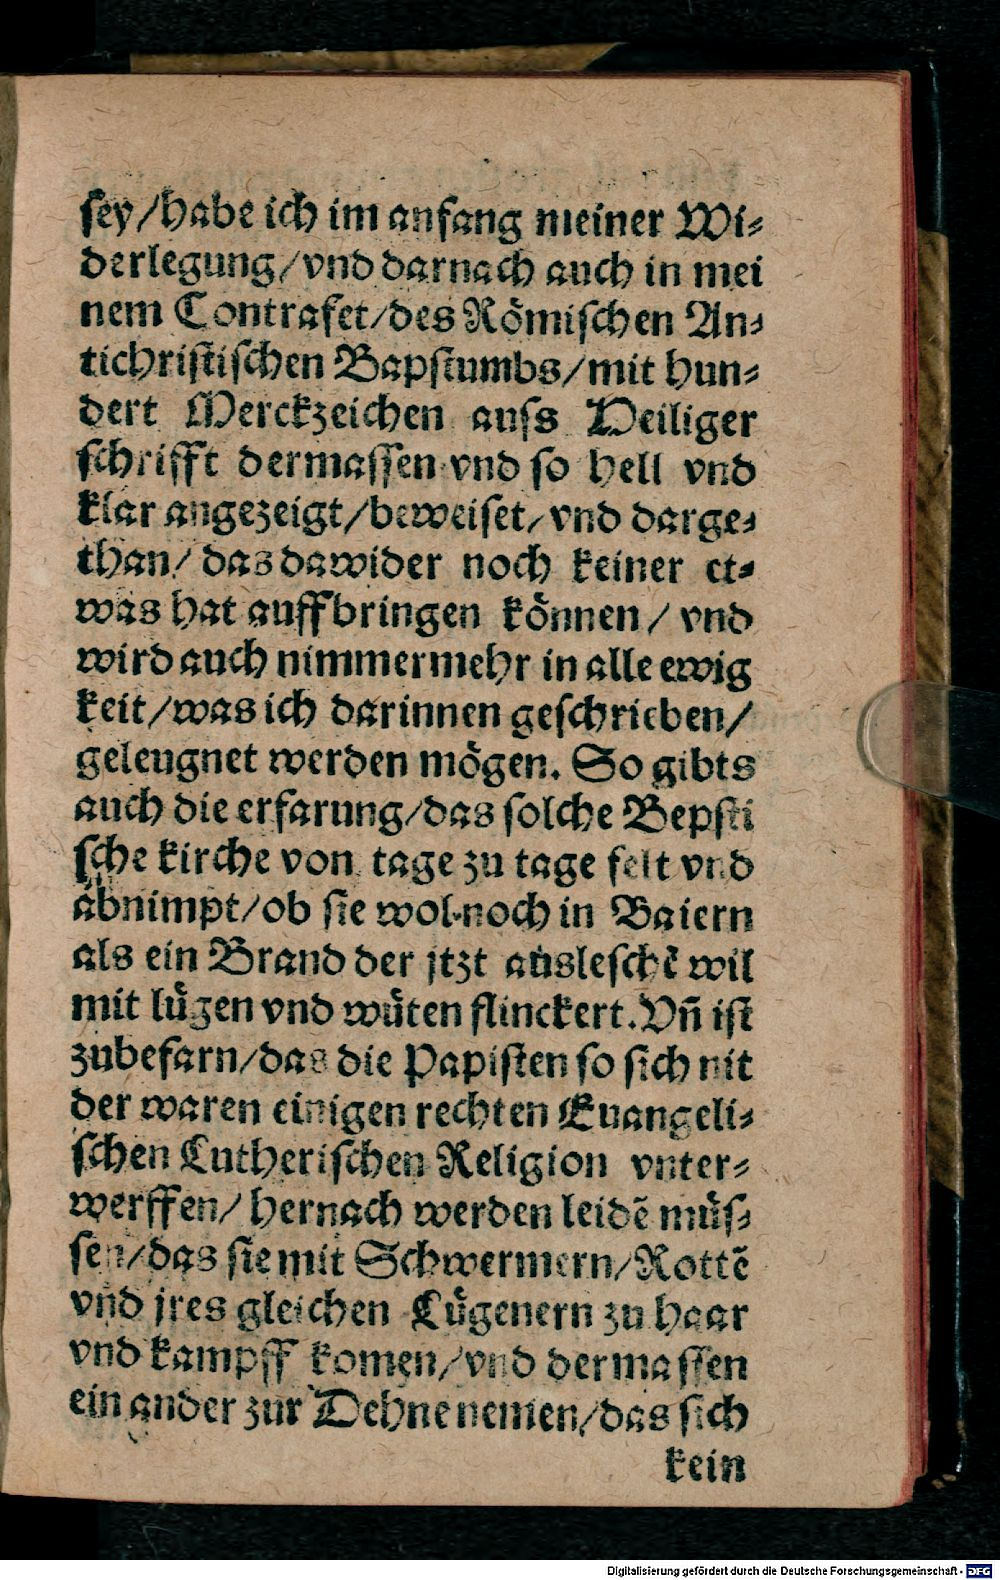 sey/habe ich im anfang meiner Wi⸗
derlegung/vnd darnach auch in mei
nem Contrafet/des Römischen An⸗
tichristischen Bapstumbs/mit hun⸗
dert Merckzeichen auss Heiliger
schrifft dermassen vnd so hell vnd
klar angezeigt/beweiset/vnd darge⸗
than/das dawider noch keiner et⸗
was hat auffbringen können/vnd
wird auch nimmermehr in alle ewig
keit/was ich darinnen geschrieben/
geleugnet werden mögen. So gibts
auch die erfarung/das solche Bepsti
sche kirche von tage zu tage felt vnd
abnimpt/ob sie wol noch in Baiern
als ein Brand der jtzt auslesche᷑ wil
mit lügen vnd wüten flinckert. Vn̄ ist
zubefarn/das die Papisten so sich nit
der waren einigen rechten Euangeli⸗
schen Lutherischen Religion vnter⸗
werffen/hernach werden leidē müs⸗
sen/das sie mit Schwermern/Rottē
vnd jres gleichen Lügenern zu haar
vnd kampff komen/vnd dermassen
ein ander zur Dehne nemen/das sich
kein
Digitalisierung gefördert durch die Deutsche Forschungsgemeinschaft - DFG